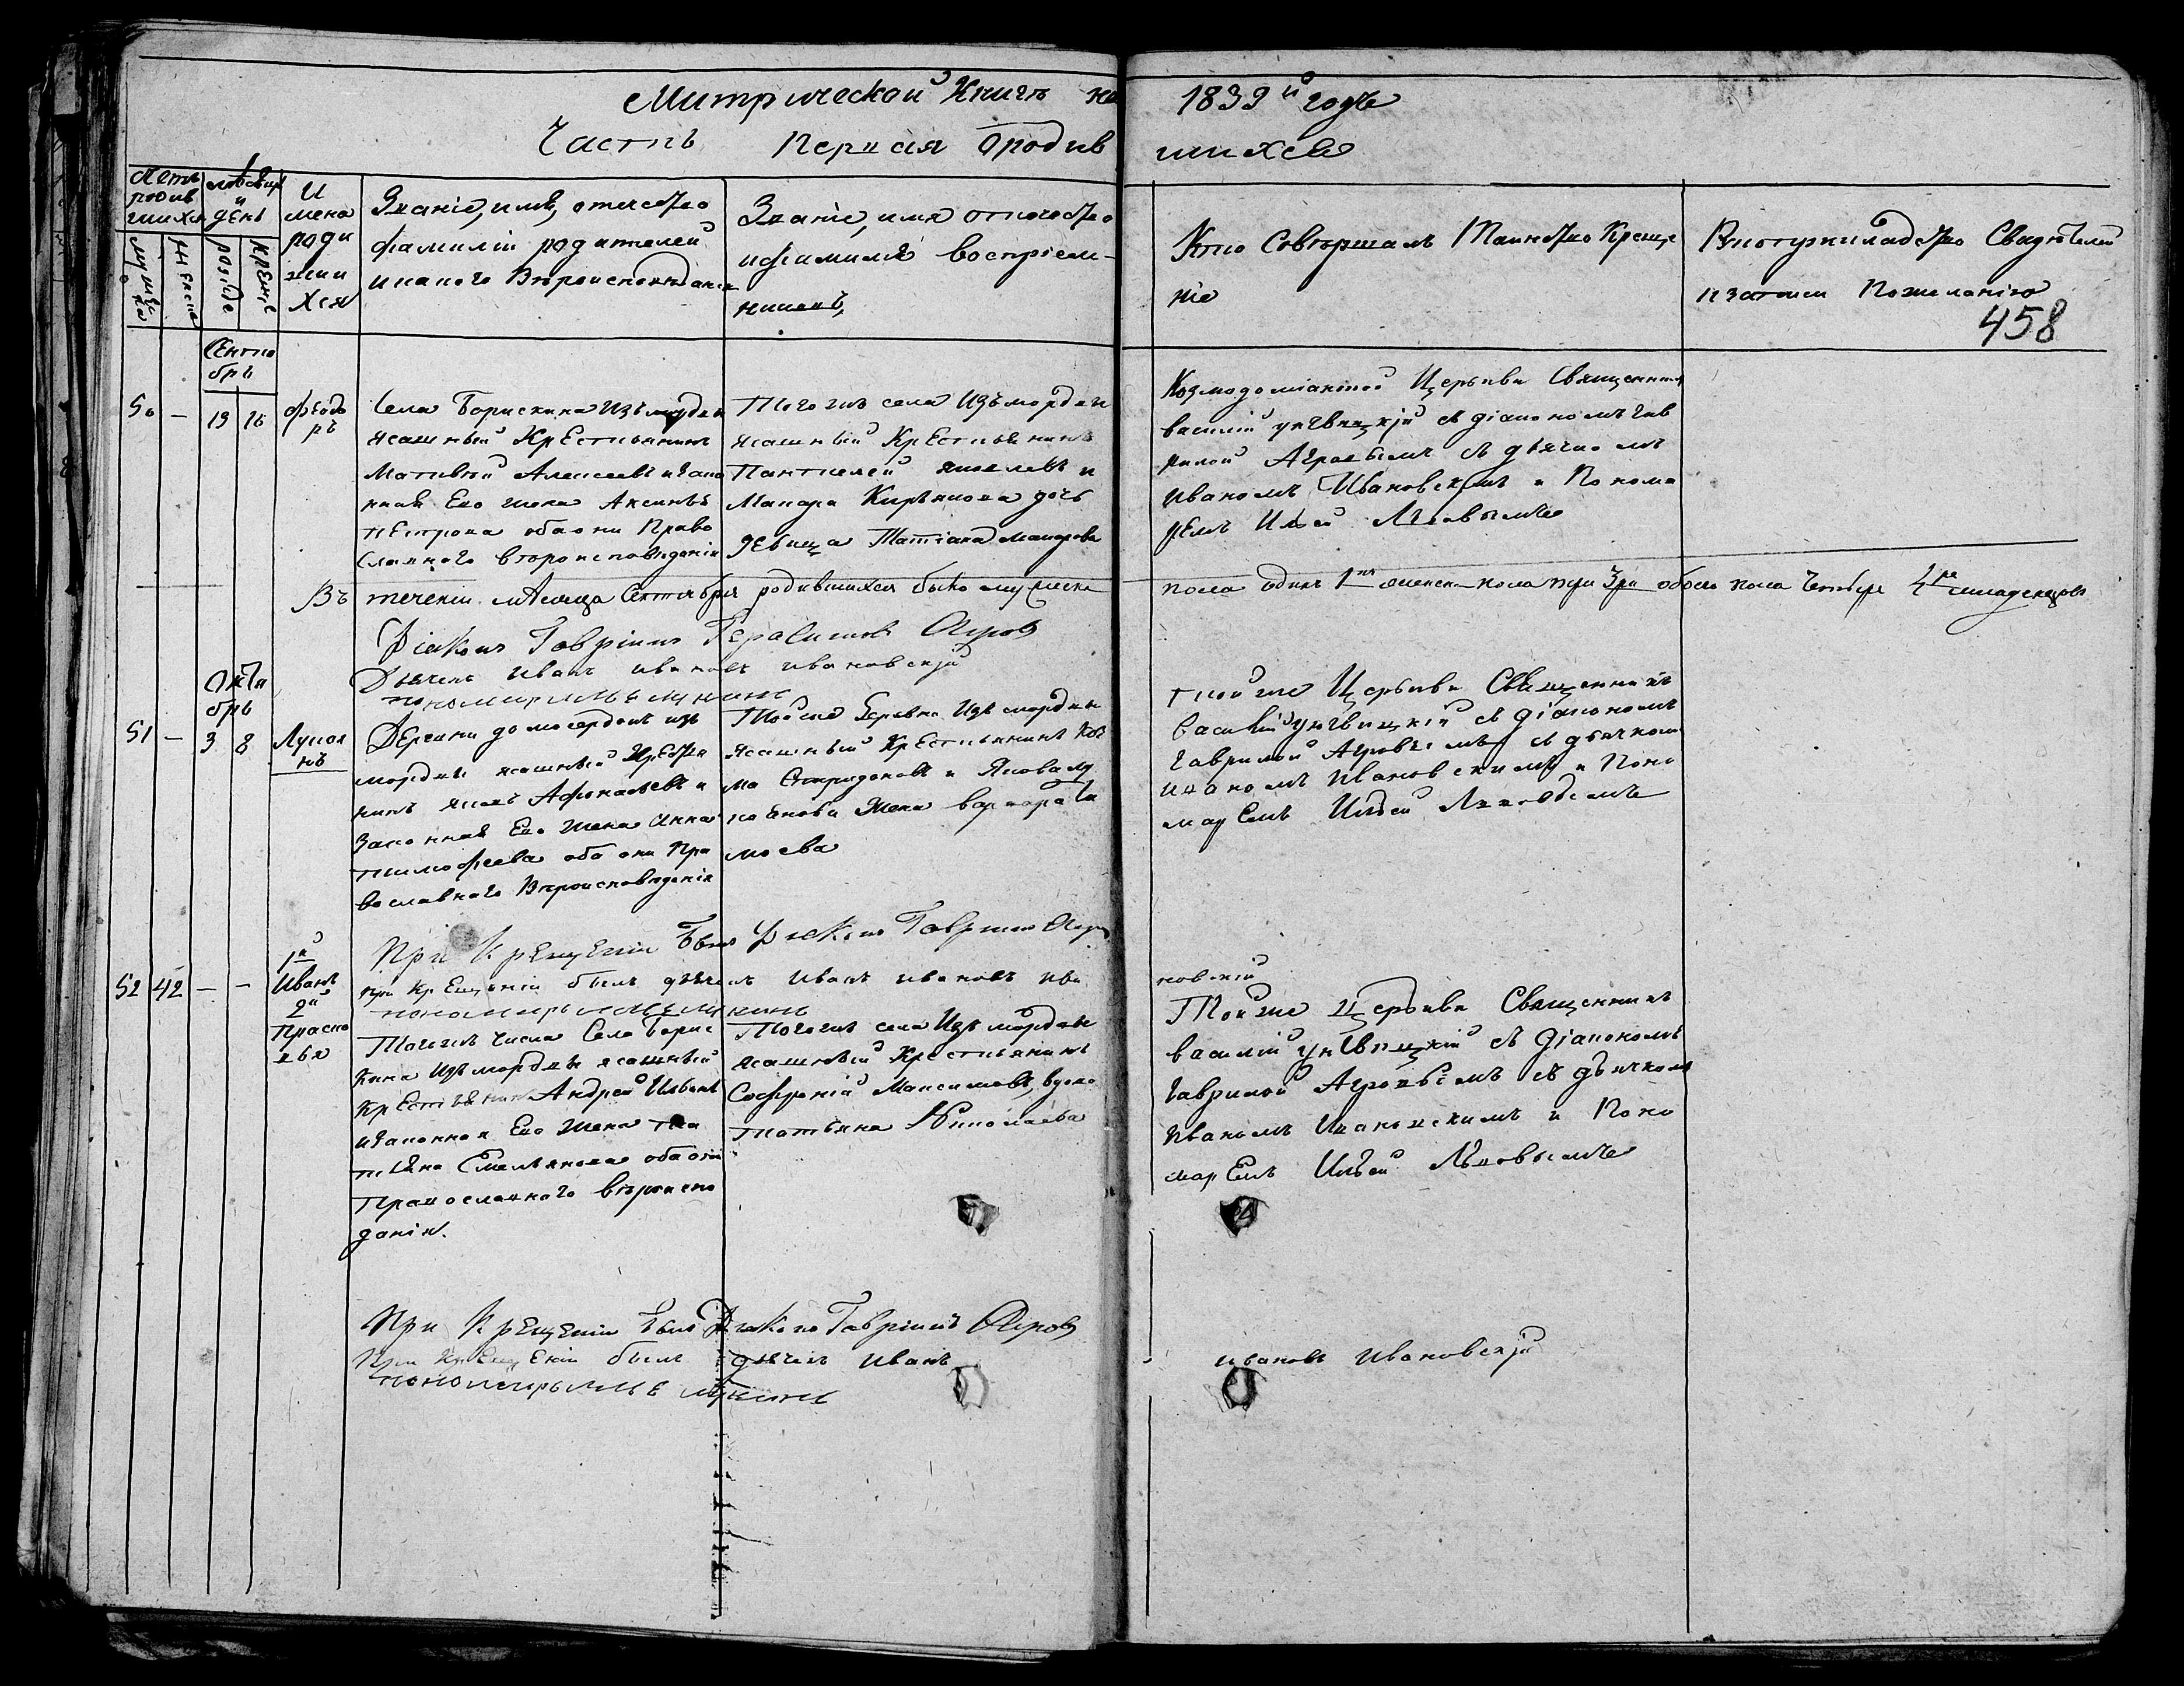 Митрической Книгѣ на 1839й годъ
Часть Первая Ородив шихся
Летъ родив шихся
месяцъ и день
И мена роди вши хся
Званіе, имя, отечество фамиліи родителей и какого Вѣроисповѣданія
Званіе, имя отечество и фамилія воспріем- никовъ,
Кто Совершалъ Таинство Креще ніе
Рукоприкладство Свидѣтелей записи Пожеланію
мужеска
женска
рожде
креще
458
Сентя брь
50 - 13 16 Феодо ръ
Села Борискина Изъ мордвы
ясашный Крестьянинъ
Матвѣй Алексеевъ и Зако
нная Его жена Аксинья
Петрова оба они Право
Славного вѣроисповѣданія
Тогожъ села Изъ мордвы
ясашный Крестьянинъ
Пантелей Яковлевъ и
Макара Кирѣянова дочь
девица Татіана Макарова
Козмодоміанской Церькви Священникъ
василій діакономъ Гав
рилой Агровымъ съ дьячко мъ
Иваномъ Ивановскимъ и Понома
ремъ Ильей
Въ теченіи мѣсяца Сентября родившихся было мужеска пола одинъ 1нъ женска пола три 3ри обоего пола Четыре 4ре младенцовъ
Діаконъ Гавріилъ Герасимовъ Агровъ
Дьячекъ Иванъ Ивановъ Ивановскій
пономарь
Октя брь
51 - 3 8 Лукоя нъ
Деревни домосердокъ изъ
мордвы ясашный Крестья
нинъ Яковъ Афонасьевъ и
Законная Его жена Анна
Тимофеева оба они Пра
вославного Вѣроисповѣданія
Тойже Деревни Изъ мордвы
ясашный Крестьянинъ Коз
ма Спиридоновъ и Якова
жена варвара
Тойже Церькви Священникъ
Василій съ діакономъ
Гаврилой Агровымъ съ дьячкомъ
Иваномъ Ивановскимъ и Поно
маремъ Ильей
При Крещеніи Былъ Діаконъ Гавріилъ Агровъ
при Крещеніи былъ дьячекъ Иванъ Ивановъ Ива новскій
пономарь
52 42 - - 1й Иванъ 2й Праско вья
Тогожъ Числа Села Борис
кина Изъ мордвы ясашный
Крестьянинъ Андрей Ивановъ
и Законная Его жена Та
тьяна Емельянова оба они
Православного вѣроиспо
данія.
Тогожъ села Изъ мордвы
ясашный Крестьянинъ
Софроній Максимовъ, вдова
татьяна Николаева
Тойже Церькви Священникъ
василій съ Діакономъ
Гаврилой Агровымъ съ дьячкомъ
Иваномъ Ивановскимъ и Поно
маремъ Ильей
При Крещеніи былъ Діаконъ Гавріилъ Агровъ
При Крещеніи былъ дьячекъ Иванъ Ивановъ Ивановскій
пономарь